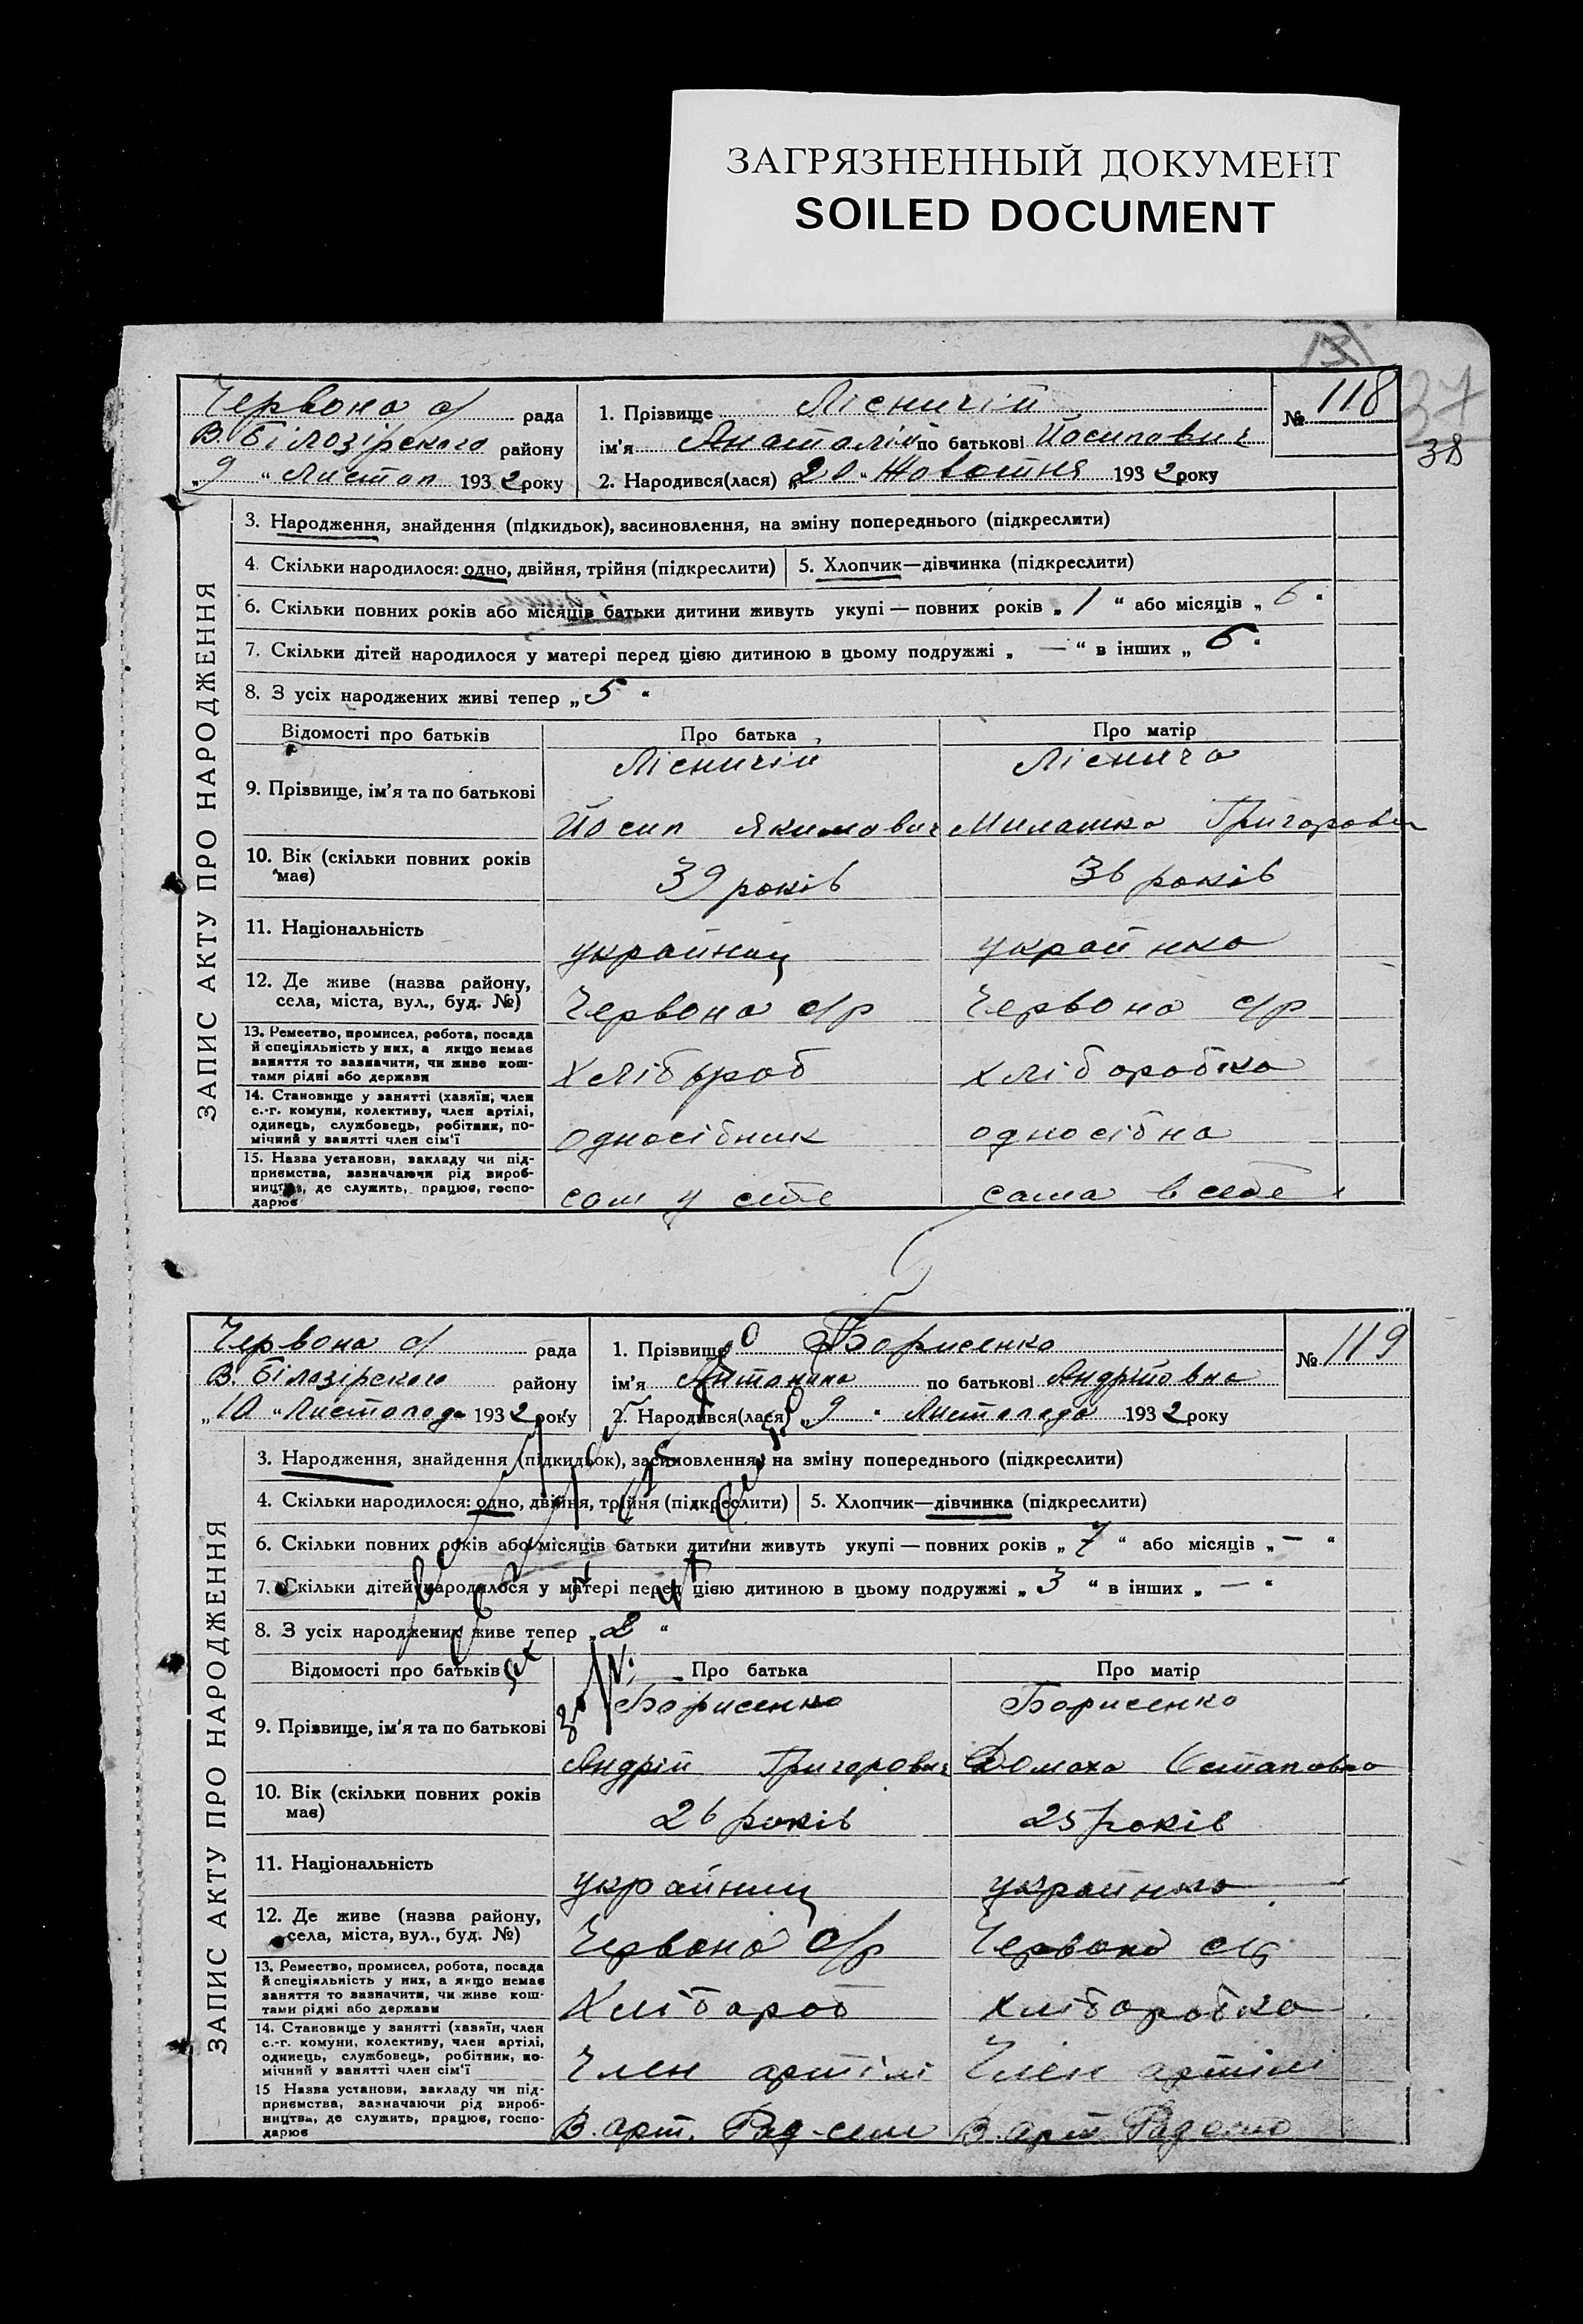 ЗАГРЯЗНЕННЫЙ ДОКУМЕНТ
SOILED DOCUMENT
37
38
Червона с/ рада
В. Білозірского району
„9“ Листоп 1932 року
1. Прізвище Лісничій
ім'я Анатолій по батькові Йосипович
2. Народився(лася) „20“ Жовтня 1932 року
№ 118
ЗАПИС АКТУ ПРО НАРОДЖЕННЯ
3. Народження, знайдення (підкидьок), засиновлення, на зміну попереднього (підкреслити)
4. Скільки народилося: одно, двійня, трійня (підкреслити) 5. Хлопчик—дівчинка (підкреслити)
6. Скільки повних років або місяців батьки дитини живуть укупі — повних років „1“ або місяців „6“
7. Скільки дітей народилося у матері перед цією дитиною в цьому подружжі „—“ в інших „6“
8. З усіх народжених живі тепер „5“
Відомості про батьків Про батька Про матір
9. Прізвище, ім'я та по батькові
Лісничій Ліснича
Йосип Якимович Милашка Григоровн
10. Вік (скільки повних років має) 39 років 36 років
11. Національність україниц українка
12. Де живе (назва району, села, міста, вул., буд. №) Червона с/р Червона с/р
13. Ремество, промисел, робота, посада
й спеціяльність у них, а якщо немає
заняття то зазначити, чи живе кош-
тами рідні або держави
Хлібороб хліборобка
14. Становище у занятті (хазяїн, член
с.-г. комуни, колективу, член артілі,
одинець, службовець, робітник, по-
мічний у занятті член сім'ї
односібник односібна
15. Назва установи, закладу чи під-
приємства, зазначаючи рід вироб-
ництва, де служить, працює, госпо-
дарює
сам у себе сама в себе
Червона с/ рада
В. Білозірского району
„10“ Листопада 1932 року
1. Прізвище Борисенко
ім'я Антонина по батькові Андрійовна
2. Народився(лася) „9“ Листопада 1932 року
№ 119
ЗАПИС АКТУ ПРО НАРОДЖЕННЯ
3. Народження, знайдення (підкидьок), засиновлення, на зміну попереднього (підкреслити)
4. Скільки народилося: одно, двійня, трійня (підкреслити) 5. Хлопчик—дівчинка (підкреслити)
6. Скільки повних років або місяців батьки дитини живуть укупі — повних років „7“ або місяців „—“
7. Скільки дітей народилося у матері перед цією дитиною в цьому подружжі „3“ в інших „—“
8. З усіх народжених живе тепер „2“
Відомості про батьків Про батька Про матір
9. Прізвище, ім'я та по батькові
Борисенко Борисенко
Андрій Григорович Домаха Остаповна
10. Вік (скільки повних років має) 26 років 25 років
11. Національність україниц українка
12. Де живе (назва району, села, міста, вул., буд. №) Червона с/р Червона с/р
13. Ремество, промисел, робота, посада
й спеціяльність у них, а якщо немає
заняття то зазначити, чи живе кош-
тами рідні або держави
Хлібороб хліборобка
14. Становище у занятті (хазяїн, член
с.-г. комуни, колективу, член артілі,
одинець, службовець, робітник, по-
мічний у занятті член сім'ї
Член артілі Член артілі
15 Назва установи, закладу чи під-
приємства, зазначаючи рід вироб-
ництва, де служить, працює, госпо-
дарює
В. арт. Рад-село В. арт Рад село